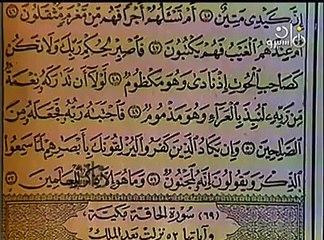 إِنَّ كَيْدِي مَتِينٌ ٤٥ أَمْ تَسْـَٔلُهُمْ أَجْرًا فَهُم مِّن مَّغْرَمٍ مُّثْقَلُونَ ٤٦
أَمْ عِندَهُمُ ٱلْغَيْبُ فَهُمْ يَكْتُبُونَ ٤٧ فَٱصْبِرْ لِحُكْمِ رَبِّكَ وَلَا تَكُن
كَصَاحِبِ ٱلْحُوتِ إِذْ نَادَىٰ وَهُوَ مَكْظُومٌ ٤٨ لَّوْلَآ أَن تَدَٰرَكَهُۥ نِعْمَةٌ
مِّن رَّبِّهِۦ لَنُبِذَ بِٱلْعَرَآءِ وَهُوَ مَذْمُومٌ ٤٩ فَٱجْتَبَٰهُ رَبُّهُۥ فَجَعَلَهُۥ مِنَ
ٱلصَّٰلِحِينَ ٥٠ وَإِن يَكَادُ ٱلَّذِينَ كَفَرُوا۟ لَيُزْلِقُونَكَ بِأَبْصَٰرِهِمْ لَمَّا سَمِعُوا۟
ٱلذِّكْرَ وَيَقُولُونَ إِنَّهُۥ لَمَجْنُونٌ ٥١ وَمَا هُوَ إِلَّا ذِكْرٌ لِّلْعَٰلَمِينَ ٥٢
(٦٩) سورة الحاقة مكية
وآياتها ٥٢ نزلت بعد الملك